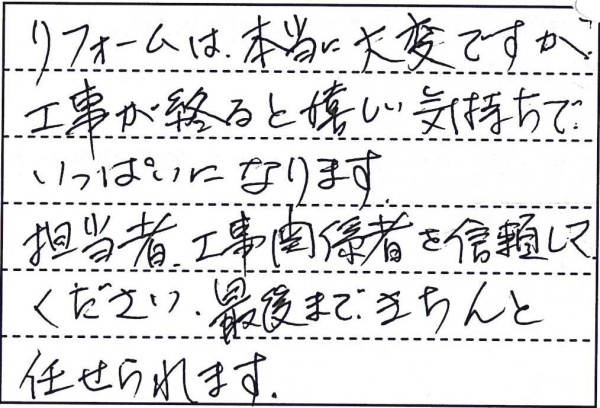 リフォームは、本当に大変ですが、
工事が終ると嬉しい気持ちで
いっぱいになります。
担当者、工事関係者を信頼して
ください。最後まできちんと
任せられます。